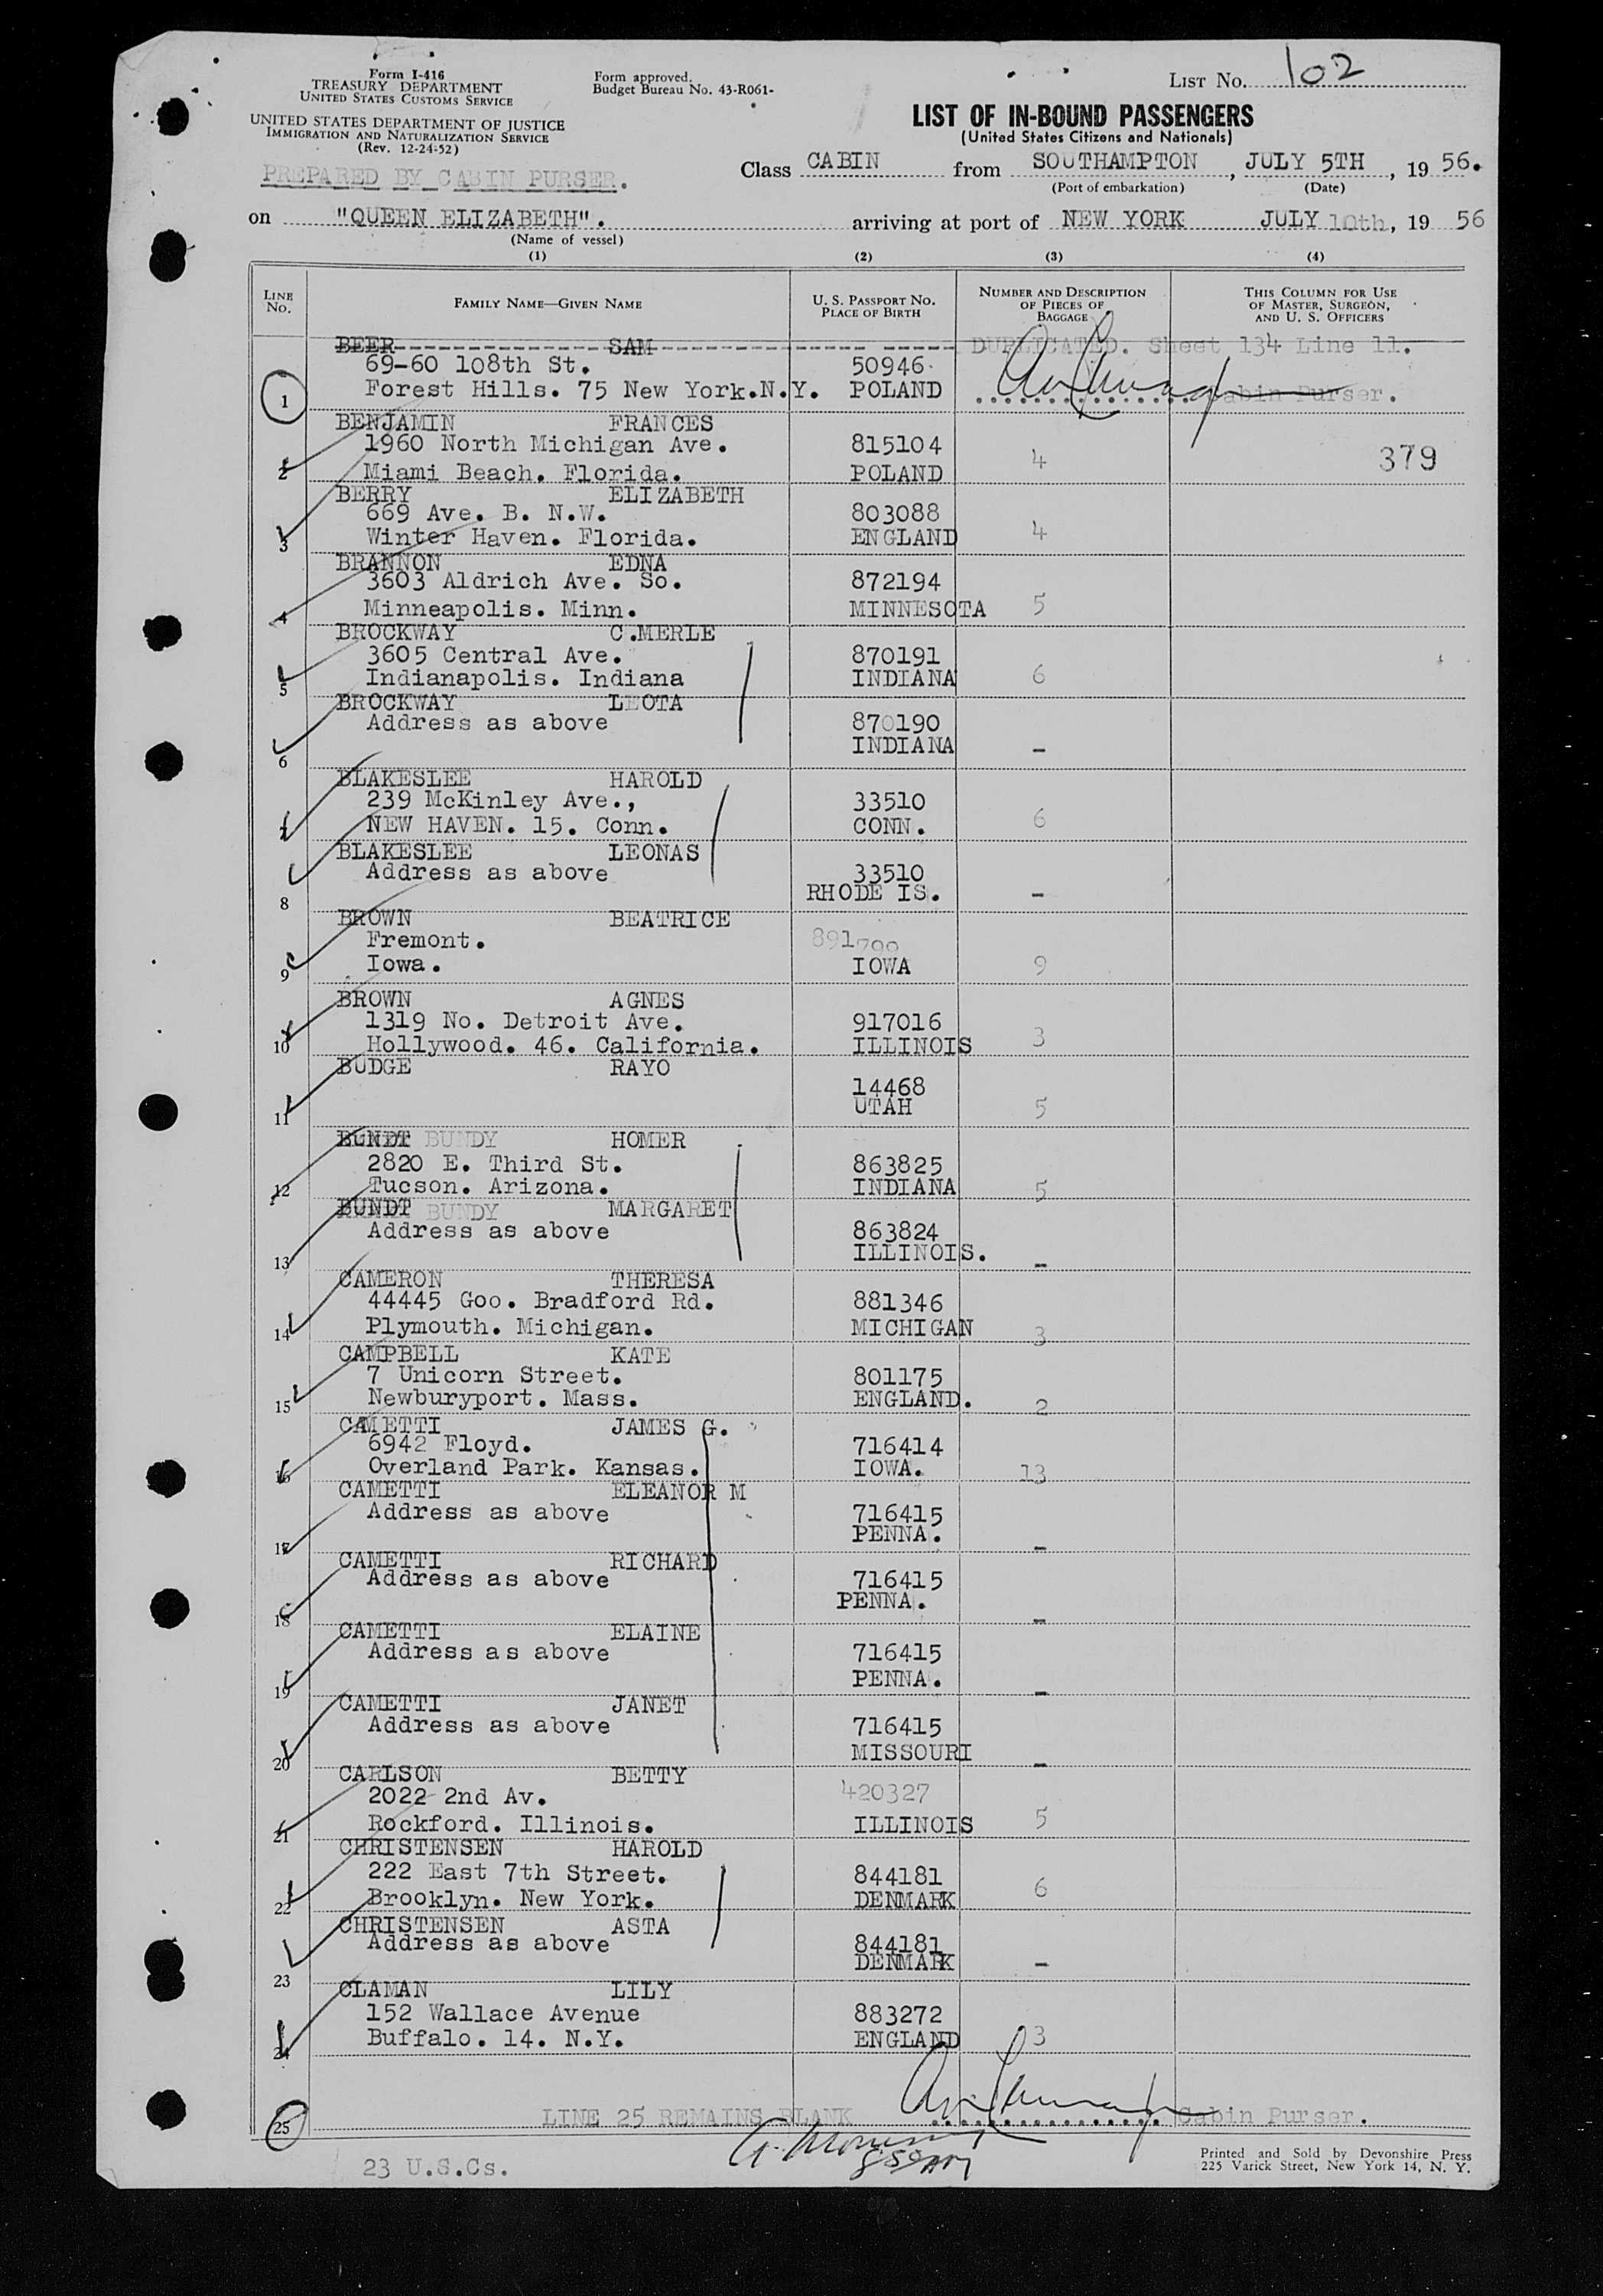 Form I-416
TREASURY DEPARTMENT
UNITED STATES CUSTOMS SERVICE
UNITED STATES DEPARTMENT OF JUSTICE
IMMIGRATION AND NATURALIZATION SERVICE
(Rev. 12-24-52)
PREPARED BY CABIN PURSER.
Form approved.
Budget Bureau No. 43-R061-
LIST NO. 102
LIST OF IN-BOUND PASSENGERS
(United States Citizens and Nationals)
Class CABIN from SOUTHAMPTON, JULY 5TH, 19 56.
(Port of embarkation) (Date)
on "QUEEN ELIZABETH". arriving at port of NEW YORK JULY 10th, 19 56
(Name of vessel)
(1) (2) (3) (4)
LINE NO. FAMILY NAME—GIVEN NAME U. S. PASSPORT NO. PLACE OF BIRTH NUMBER AND DESCRIPTION OF PIECES OF BAGGAGE THIS COLUMN FOR USE OF MASTER, SURGEON, AND U. S. OFFICERS
BEER SAM DUPLICATED. Sheet 134 Line 11.
69-60 108th St. 50946
1 Forest Hills. 75 New York.N.Y. POLAND Cabin Purser.
BENJAMIN FRANCES
1960 North Michigan Ave. 815104 4 379
2 Miami Beach. Florida. POLAND
BERRY ELIZABETH
669 Ave. B. N.W. 803088
3 Winter Haven. Florida. ENGLAND 4
BRANNON EDNA
3603 Aldrich Ave. So. 872194
4 Minneapolis. Minn. MINNESOTA 5
BROCKWAY C.MERLE
3605 Central Ave. 870191
5 Indianapolis. Indiana INDIANA 6
BROCKWAY LEOTA
Address as above 870190
6 INDIANA -
BLAKESLEE HAROLD
239 McKinley Ave., 33510
7 NEW HAVEN. 15. Conn. CONN. 6
BLAKESLEE LEONAS
Address as above 33510
8 RHODE IS. -
BROWN BEATRICE
Fremont. 891799
9 Iowa. IOWA 9
BROWN AGNES
1319 No. Detroit Ave. 917016
10 Hollywood. 46. California. ILLINOIS 3
BUDGE RAYO
14468
11 UTAH 5
BUNDT BUNDY HOMER
2820 E. Third St. 863825
12 Tucson. Arizona. INDIANA 5
BUNDT BUNDY MARGARET
Address as above 863824
13 ILLINOIS. -
CAMERON THERESA
44445 Goo. Bradford Rd. 881346
14 Plymouth. Michigan. MICHIGAN 3
CAMPBELL KATE
7 Unicorn Street. 801175
15 Newburyport. Mass. ENGLAND. 2
CAMETTI JAMES G.
6942 Floyd. 716414
16 Overland Park. Kansas. IOWA. 13
CAMETTI ELEANOR M
Address as above 716415
17 PENNA. -
CAMETTI RICHARD
Address as above 716415
18 PENNA. -
CAMETTI ELAINE
Address as above 716415
19 PENNA. -
CAMETTI JANET
Address as above 716415
20 MISSOURI -
CARLSON BETTY
2022 2nd Av. 420327
21 Rockford. Illinois. ILLINOIS 5
CHRISTENSEN HAROLD
222 East 7th Street. 844181
22 Brooklyn. New York. DENMARK 6
CHRISTENSEN ASTA
Address as above 844181
23 DENMARK -
CLAMAN LILY
152 Wallace Avenue 883272
24 Buffalo. 14. N.Y. ENGLAND 3
25 LINE 25 REMAINS BLANK Cabin Purser.
23 U.S.Cs.
Printed and Sold by Devonshire Press
225 Varick Street, New York 14, N. Y.